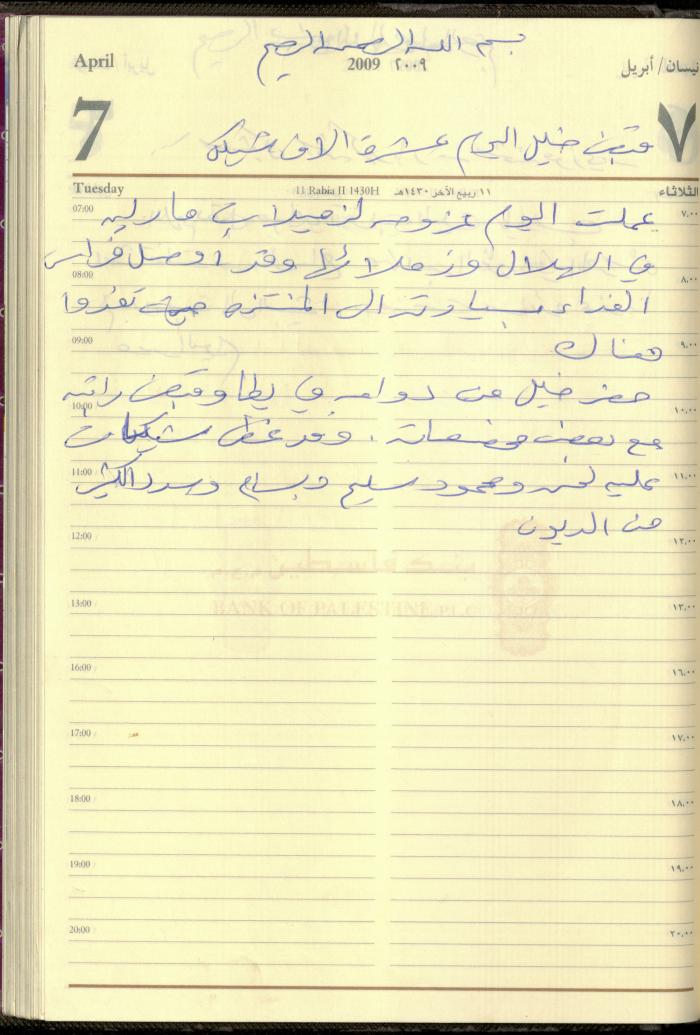 بسم الله الرحمن الرحيم
April 2009 ٢٠٠٩ نيسان/أبريل
7 ٧
قبض خليل اليوم عشرة الاف شيكل
Tuesday 11 Rabia II 1430H ١١ ربيع الآخر ١٤٣٠هـ الثلاثاء
07:00 ٧.٠٠
عملت اليوم عزومه لزميلات
في الهلال وزملائها وقد اوصل فراس
08:00 ٨.٠٠
الغداء بسيارته الى المنتزه حيث تغدوا
09:00 ٩.٠٠
هناك
حضر خليل من دوامه في يطا وقبض راتبه
10:00 ١٠.٠٠
مع بعض مخصصاته. وقد غطى شيكات
11:00 ١١.٠٠
عليه ومحمود سليم وبسام وسدد الكثير
من الديون
12:00 ١٢.٠٠
بنك فلسطين
BANK OF PALESTINE PLC
13:00 ١٣.٠٠
16:00 ١٦.٠٠
17:00 ١٧.٠٠
18:00 ١٨.٠٠
19:00 ١٩.٠٠
20:00 ٢٠.٠٠